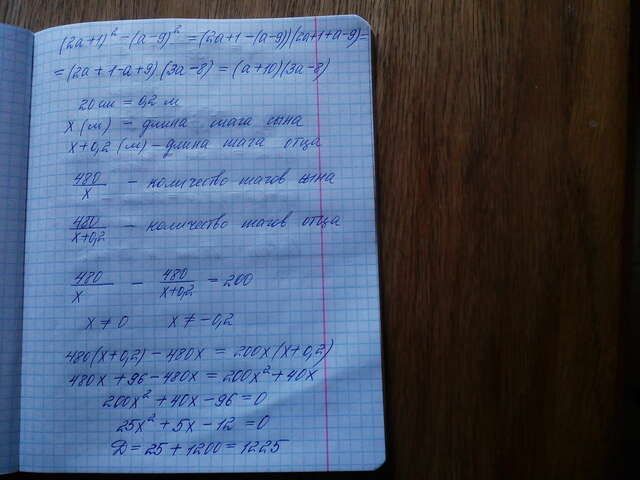 (2a+1)² - (a-9)² = (2a+1-(a-9))(2a+1+a-9)=
= (2a+1-a+9)·(3a-8) = (a+10)(3a-8)
20 см = 0,2 м
x (м) - длина шага сына
x+0,2 (м) - длина шага отца
480/x - количество шагов сына
480/(x+0,2) - количество шагов отца
480/x - 480/(x+0,2) = 200
x ≠ 0 x ≠ -0,2
480(x+0,2) - 480x = 200x(x+0,2)
480x + 96 - 480x = 200x² + 40x
200x² + 40x - 96 = 0
25x² + 5x - 12 = 0
Д = 25 + 1200 = 1225